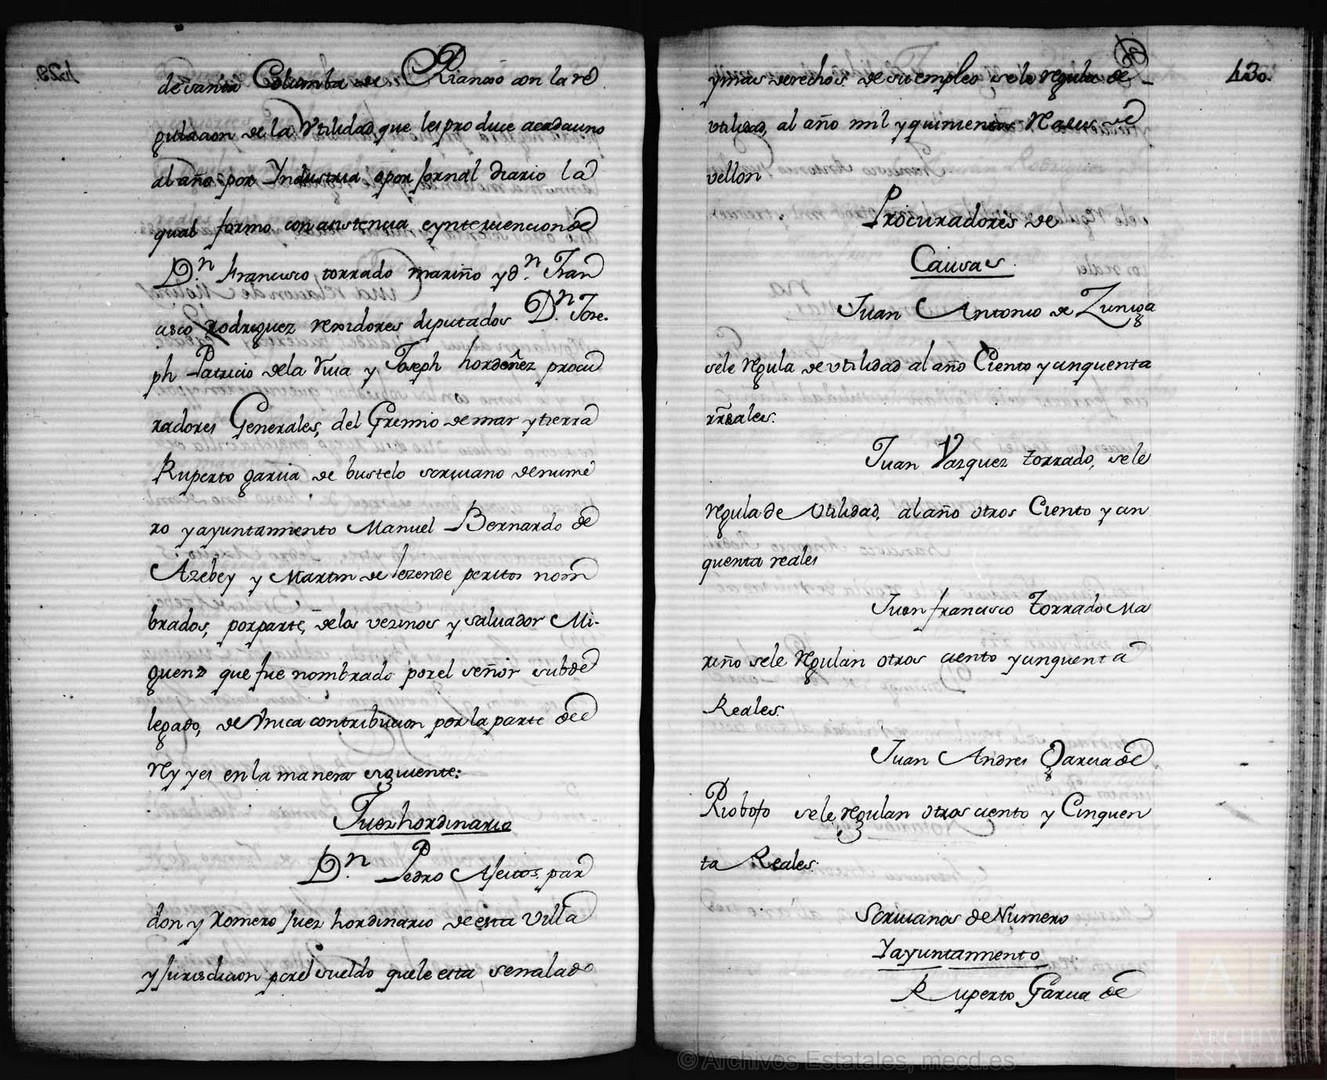 de santa Columba de Rianxo con la re
gulacion de la Vtilidad que les produce acadauno
al año por Yndustria o por Jornal diario la
qual formo con asistencia e ynteruencion de
D.n Francisco torrado mariño y d.n Fran
cisco Rodriguez rexidores diputados D.n Jose-
ph Patricio de la Vuia y Joseph hordoñez procu
radores Generales, del Gremio de mar y tierra
Ruperto garcia de bustelo scriuano de nume
ro y ayuntamiento Manuel Bernardo de
Azebey y Martin de lezende peritos nom
brados, por parte, de los vezinos y saluador Mi-
guenz que fue nombrado por el señor subde
legado, de Vnica contribucion por la parte de el
Rey y es en la manera siguiente:
Juez hordinario
D.n Pedro Afeitos, par
don y Romero Juez hordinario de esta Villa
y Jurisdicion por el sueldo que le esta señalado
130.
y mas derechos de su empleo se le regula de
vtilidad, al año mil y quinientos Reales de
vellon
Procuradores de
Causas
Juan Antonio de Zuniga
se le regula de vtilidad al año Ciento y cinquenta
rreales.
Juan Vazquez torrado, se le
regula de Vtilidad, al año otros Ciento y cin
quenta reales
Juan francisco Torrado Ma
riño se le regulan otros ciento y cinquenta
Reales.
Juan Andres Garcia de
Rioboo se le regulan otros ciento y Cinquen
ta Reales.
Scriuanos de Numero
Y ayuntamiento
Ruperto Garcia de
© Archivos Estatales, mecd.es
ARCHIVOS
ESTATALES